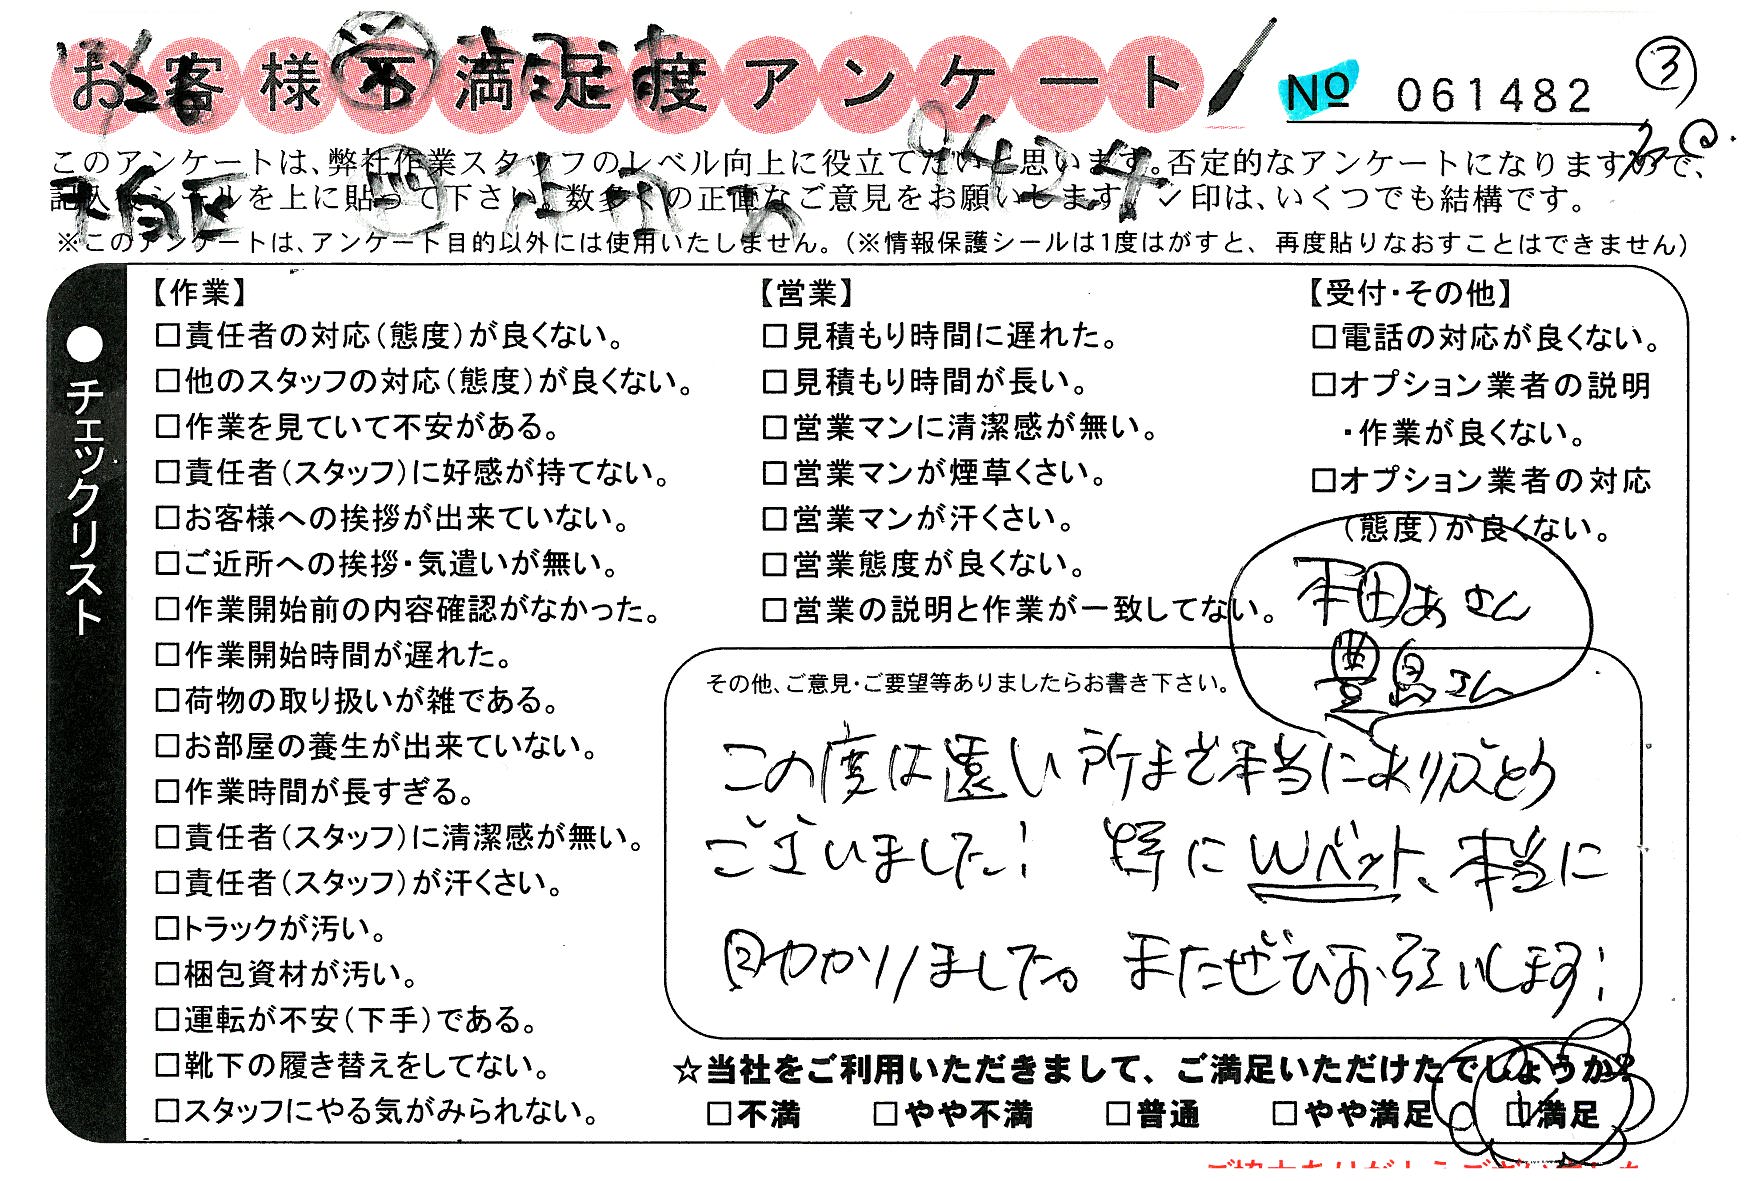 お客様不満足度アンケート
No 061482
③
このアンケートは、弊社作業スタッフのレベル向上に役立てたいと思います。否定的なアンケートになりますので、
記入はシールを上に貼って下さい。数多くの正直なご意見をお願いします。✓印は、いくつでも結構です。
※このアンケートは、アンケート目的以外には使用いたしません。(※情報保護シールは1度はがすと、再度貼りなおすことはできません)
●チェックリスト
【作業】
□責任者の対応(態度)が良くない。
□他のスタッフの対応(態度)が良くない。
□作業を見ていて不安がある。
□責任者(スタッフ)に好感が持てない。
□お客様への挨拶が出来ていない。
□ご近所への挨拶・気遣いが無い。
□作業開始前の内容確認がなかった。
□作業開始時間が遅れた。
□荷物の取り扱いが雑である。
□お部屋の養生が出来ていない。
□作業時間が長すぎる。
□責任者(スタッフ)に清潔感が無い。
□責任者(スタッフ)が汗くさい。
□トラックが汚い。
□梱包資材が汚い。
□運転が不安(下手)である。
□靴下の履き替えをしてない。
□スタッフにやる気がみられない。
【営業】
□見積もり時間に遅れた。
□見積もり時間が長い。
□営業マンに清潔感が無い。
□営業マンが煙草くさい。
□営業マンが汗くさい。
□営業態度が良くない。
□営業の説明と作業が一致してない。
【受付・その他】
□電話の対応が良くない。
□オプション業者の説明
・作業が良くない。
□オプション業者の対応
(態度)が良くない。
さん
豊島さん
その他、ご意見・ご要望等ありましたらお書き下さい。
この度は遠い所まで本当にありがとう
ございました! 特にWベット、本当に
助かりました。またぜひお願いします!
☆当社をご利用いただきまして、ご満足いただけたでしょうか?
□不満 □やや不満 □普通 □やや満足 ☑満足